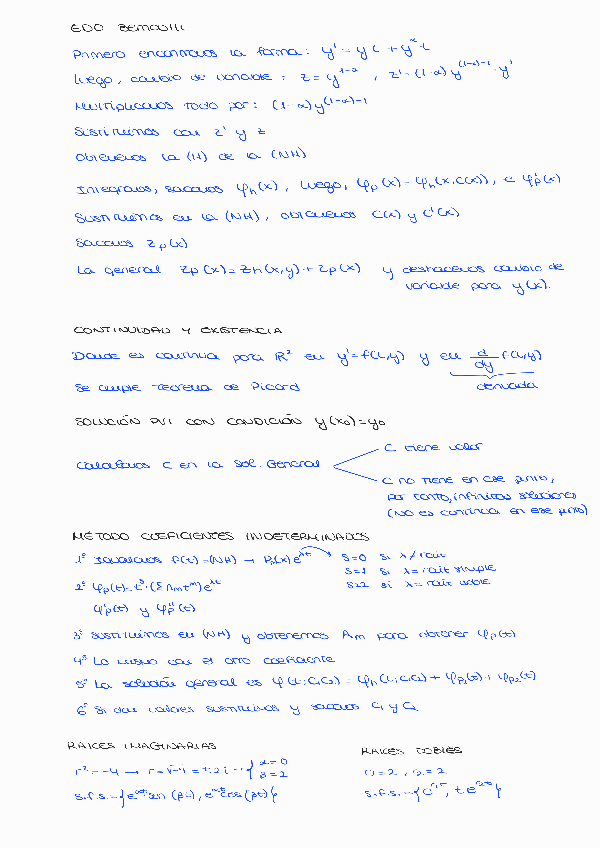 EDO Bernoulli
Primero encontramos la forma: y' = y · + y^α ·
Luego, cambio de variable: z = y^{1-α}, z' = (1-α) y^{(1-α)-1} · y'
Multiplicamos todo por: (1-α) y^{(1-α)-1}
Sustituimos con z' y z
Obtenemos la (H) de la (NH)
Integramos, sacamos φh(x), luego, φp(x) = φh(x, C(x)), e φ'p(x)
Sustituimos en la (NH), obtenemos C(x) y C'(x)
Sacamos Zp(x)
La general Zp(x) = Zh(x,y) + Zp(x) y deshacemos cambio de
variable para y(x).
CONTINUIDAD Y EXISTENCIA
Donde es continua para R² en y' = f(t,y) y en d/dy f(t,y)
derivada
Se cumple Teorema de Picard
SOLUCIÓN PVI CON CONDICIÓN y(x0) = y0
C tiene valor
Calculamos C en la Sol. General
C no tiene en ese punto,
por tanto, infinitas soluciones
(NO es continua en ese punto)
METODO COEFICIENTES INDETERMINADOS
1º Igualamos f(t) = (NH) → Pn(x) e^{λt} S=0 si λ≠raíz
S=1 si λ=raíz simple
2º φp(t) = t^s · (Σ Am t^m) e^{λt} S=2 si λ=raíz doble
φ'p(t) y φ''p(t)
3º Sustituimos en (NH) y obtenemos Am para obtener φp(t)
4º Lo mismo con el otro coeficiente
5º La solución general es φ(t; C1 C2) = φh(t; C1 C2) + φp1(t) + φp2(t)
6º Si dan valores sustituimos y sacamos C1 y C2
RAICES IMAGINARIAS
r² = -4 → r = √-4 = ±2i → { α = 0
β = 2
s.f.s. = { e^{αt} sen (βt), e^{αt} cos (βt) }
RAICES DOBLES
s.f.s. =